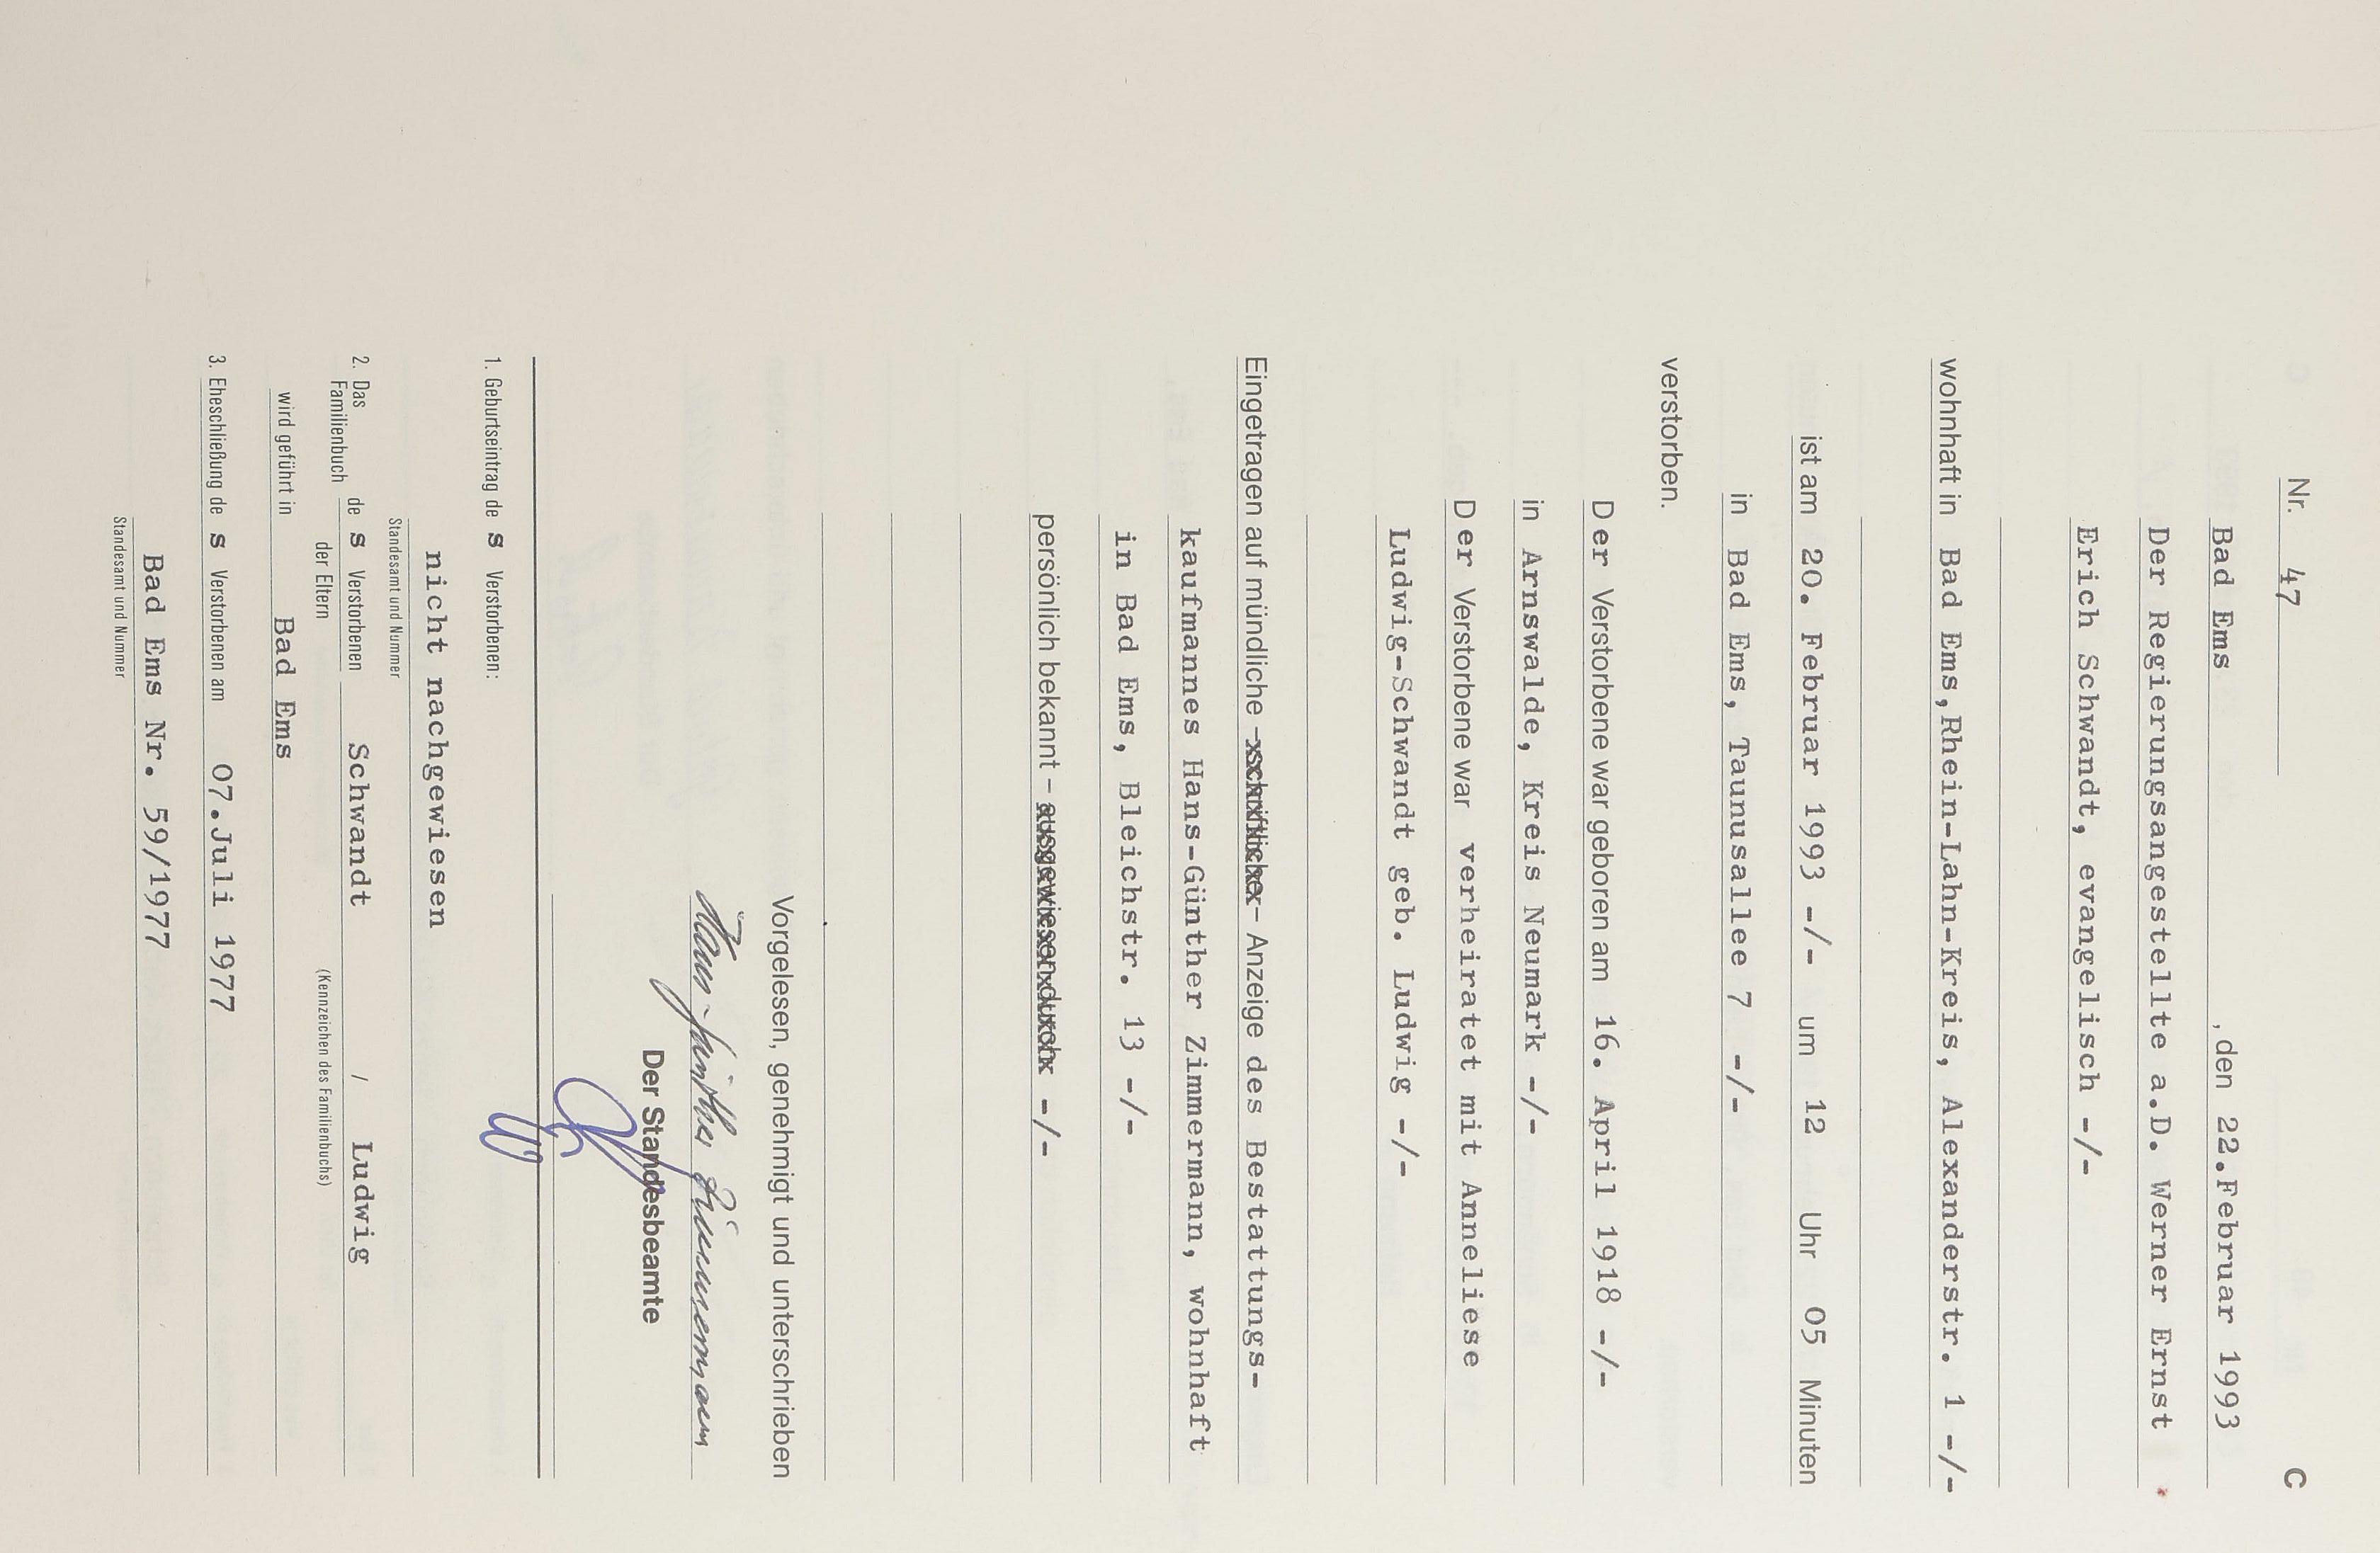 C
Nr. 47
Bad Ems , den 22.Februar 1993
Der Regierungsangestellte a.D. Werner Ernst
Erich Schwandt, evangelisch -/-
wohnhaft in Bad Ems,Rhein-Lahn-Kreis, Alexanderstr. 1 -/-
ist am 20. Februar 1993 -/- um 12 Uhr 05 Minuten
in Bad Ems, Taunusallee 7 -/-
verstorben.
Der Verstorbene war geboren am 16. April 1918 -/-
in Arnswalde, Kreis Neumark -/-
Der Verstorbene war verheiratet mit Anneliese
Ludwig-Schwandt geb. Ludwig -/-
Eingetragen auf mündliche – schriftliche – Anzeige des Bestattungs-
kaufmannes Hans-Günther Zimmermann, wohnhaft
in Bad Ems, Bleichstr. 13 -/-
persönlich bekannt – ausgewiesen durch -/-
Vorgelesen, genehmigt und unterschrieben
Hans-Günther Zimmermann
Der Standesbeamte
1. Geburtseintrag de s Verstorbenen:
nicht nachgewiesen
Standesamt und Nummer
2. Das Familienbuch de s Verstorbenen Schwandt / Ludwig
der Eltern (Kennzeichen des Familienbuchs)
wird geführt in Bad Ems
3. Eheschließung de s Verstorbenen am 07.Juli 1977
Bad Ems Nr. 59/1977
Standesamt und Nummer